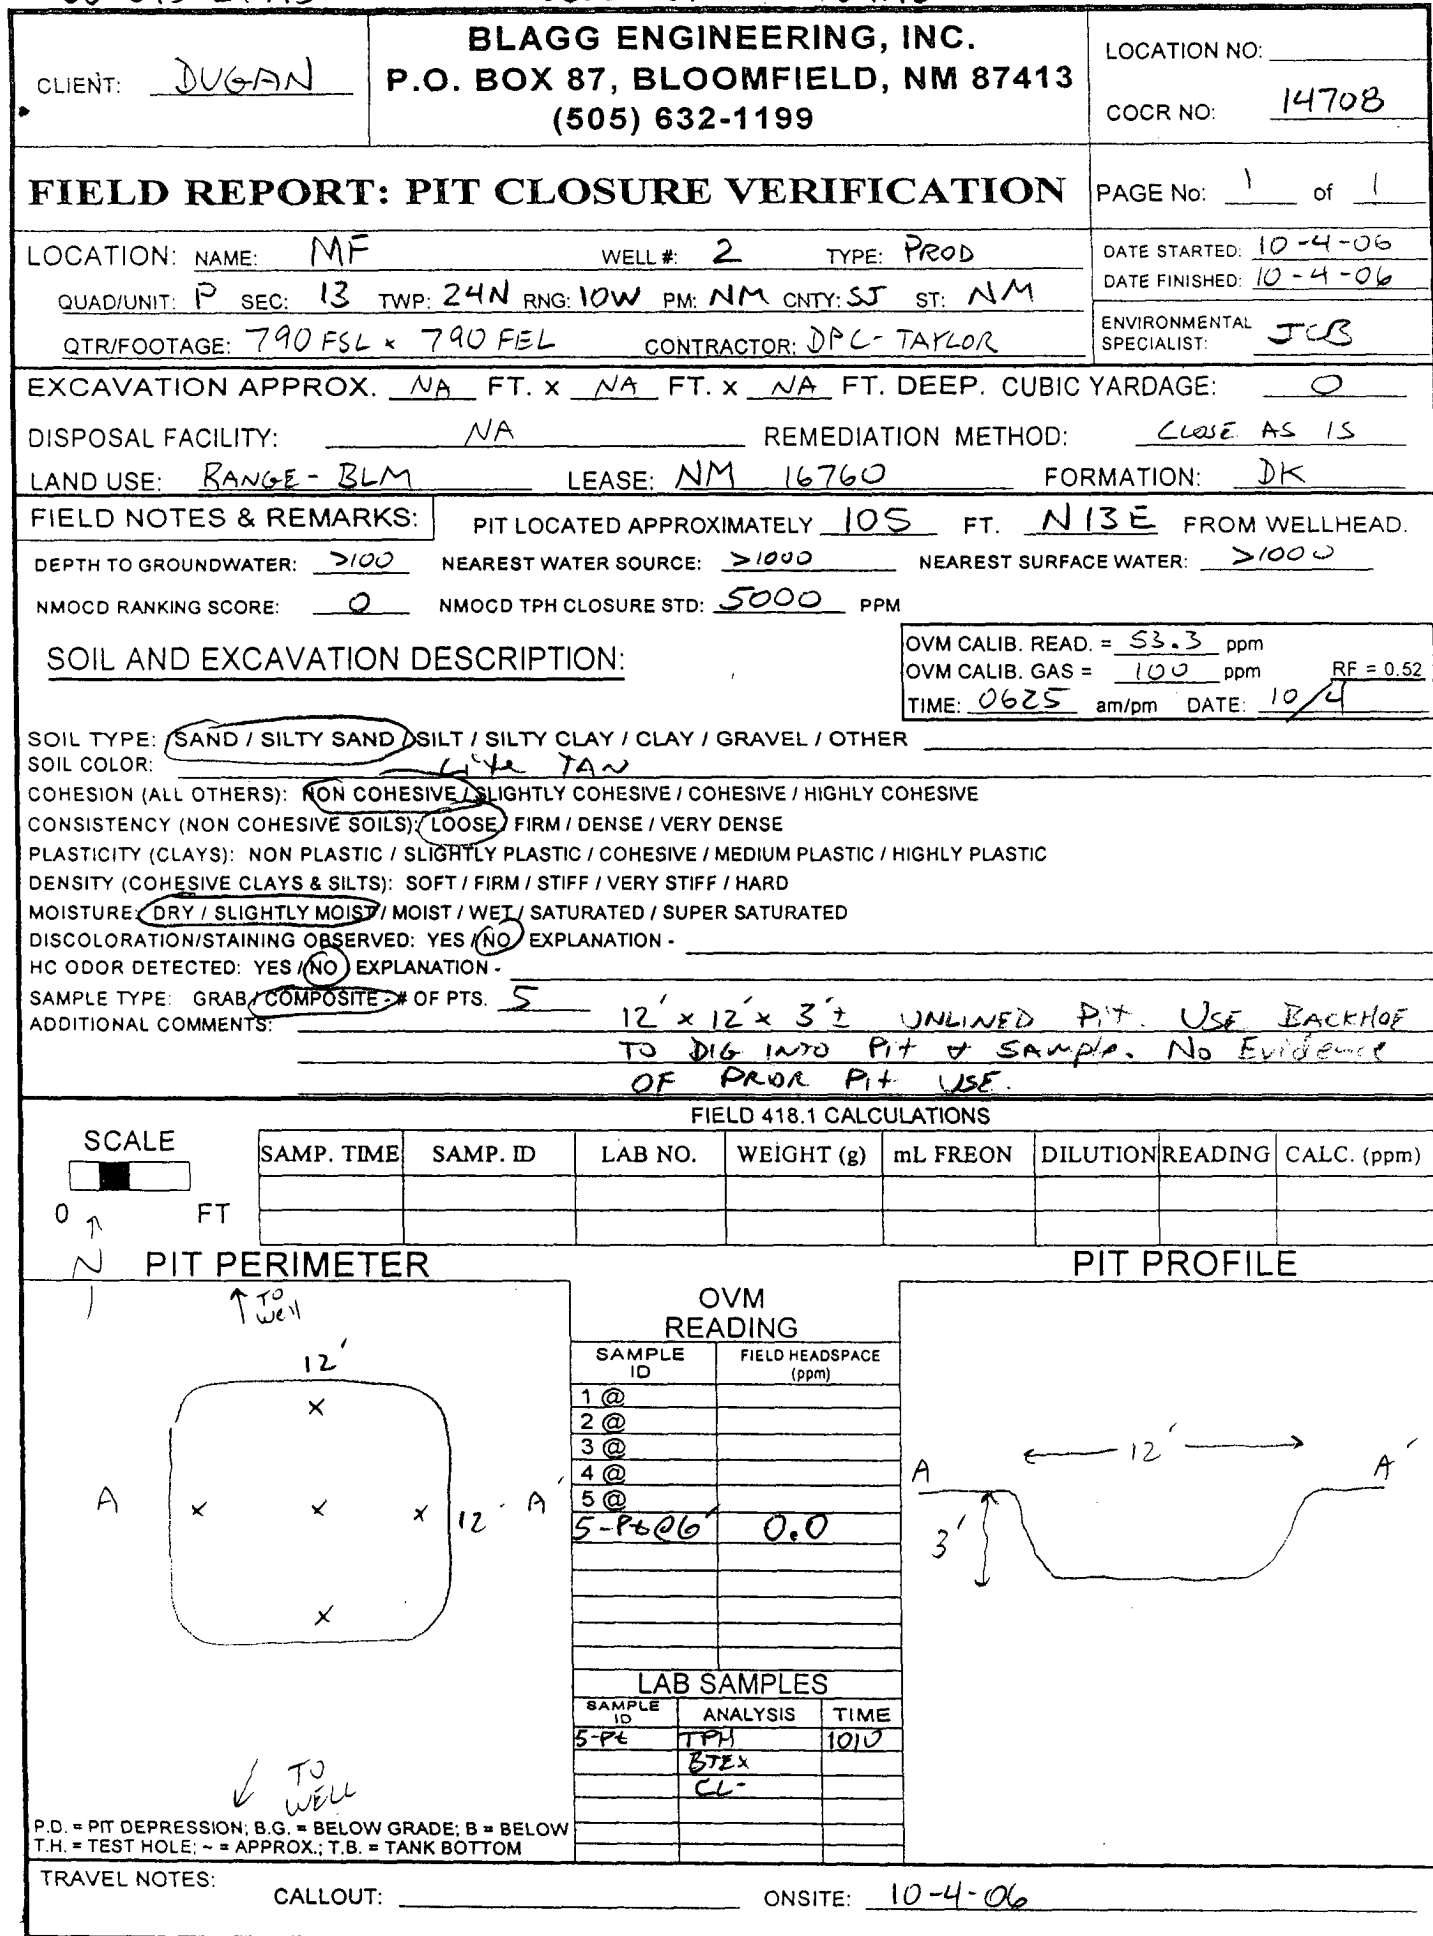 BLAGG ENGINEERING, INC.
P.O. BOX 87, BLOOMFIELD, NM 87413
(505) 632-1199
CLIENT: DUGAN
LOCATION NO:
COCR NO: 14708
FIELD REPORT: PIT CLOSURE VERIFICATION
PAGE No: 1 of 1
LOCATION: NAME: MF WELL #: 2 TYPE: PROD
QUAD/UNIT: P SEC: 13 TWP: 24N RNG: 10W PM: NM CNTY: SJ ST: NM
QTR/FOOTAGE: 790 FSL x 790 FEL CONTRACTOR: DPC-TAYLOR
DATE STARTED: 10-4-06
DATE FINISHED: 10-4-06
ENVIRONMENTAL
SPECIALIST: JCB
EXCAVATION APPROX. NA FT. x NA FT. x NA FT. DEEP. CUBIC YARDAGE: 0
DISPOSAL FACILITY: NA REMEDIATION METHOD: CLOSE AS IS
LAND USE: RANGE - BLM LEASE: NM 16760 FORMATION: DK
FIELD NOTES & REMARKS: PIT LOCATED APPROXIMATELY 105 FT. N13E FROM WELLHEAD.
DEPTH TO GROUNDWATER: >100 NEAREST WATER SOURCE: >1000 NEAREST SURFACE WATER: >1000
NMOCD RANKING SCORE: 0 NMOCD TPH CLOSURE STD: 5000 PPM
SOIL AND EXCAVATION DESCRIPTION:
OVM CALIB. READ. = 53.3 ppm
OVM CALIB. GAS = 100 ppm RF = 0.52
TIME: 0625 am/pm DATE: 10/4
SOIL TYPE: SAND / SILTY SAND / SILT / SILTY CLAY / CLAY / GRAVEL / OTHER
SOIL COLOR: Lite TAN
COHESION (ALL OTHERS): NON COHESIVE / SLIGHTLY COHESIVE / COHESIVE / HIGHLY COHESIVE
CONSISTENCY (NON COHESIVE SOILS): LOOSE / FIRM / DENSE / VERY DENSE
PLASTICITY (CLAYS): NON PLASTIC / SLIGHTLY PLASTIC / COHESIVE / MEDIUM PLASTIC / HIGHLY PLASTIC
DENSITY (COHESIVE CLAYS & SILTS): SOFT / FIRM / STIFF / VERY STIFF / HARD
MOISTURE: DRY / SLIGHTLY MOIST / MOIST / WET / SATURATED / SUPER SATURATED
DISCOLORATION/STAINING OBSERVED: YES / NO EXPLANATION -
HC ODOR DETECTED: YES / NO EXPLANATION -
SAMPLE TYPE: GRAB / COMPOSITE - # OF PTS. 5
ADDITIONAL COMMENTS: 12' x 12' x 3'± UNLINED Pit. USE BACKHOE
TO DIG INTO Pit & SAMPLE. No Evidence
OF PRIOR Pit USE.
FIELD 418.1 CALCULATIONS
SCALE
0 FT
SAMP. TIME SAMP. ID LAB NO. WEIGHT (g) mL FREON DILUTION READING CALC. (ppm)
N
PIT PERIMETER
PIT PROFILE
TO
Well
12'
A
12'
A'
OVM
READING
SAMPLE
ID
FIELD HEADSPACE
(ppm)
1 @
2 @
3 @
4 @
5 @
5-Pt@6' 0.0
A
12'
A'
3'
LAB SAMPLES
SAMPLE
ID
ANALYSIS TIME
5-Pt TPH 1010
BTEX
CL-
TO
WELL
P.D. = PIT DEPRESSION; B.G. = BELOW GRADE; B = BELOW
T.H. = TEST HOLE; ~ = APPROX.; T.B. = TANK BOTTOM
TRAVEL NOTES:
CALLOUT: ONSITE: 10-4-06